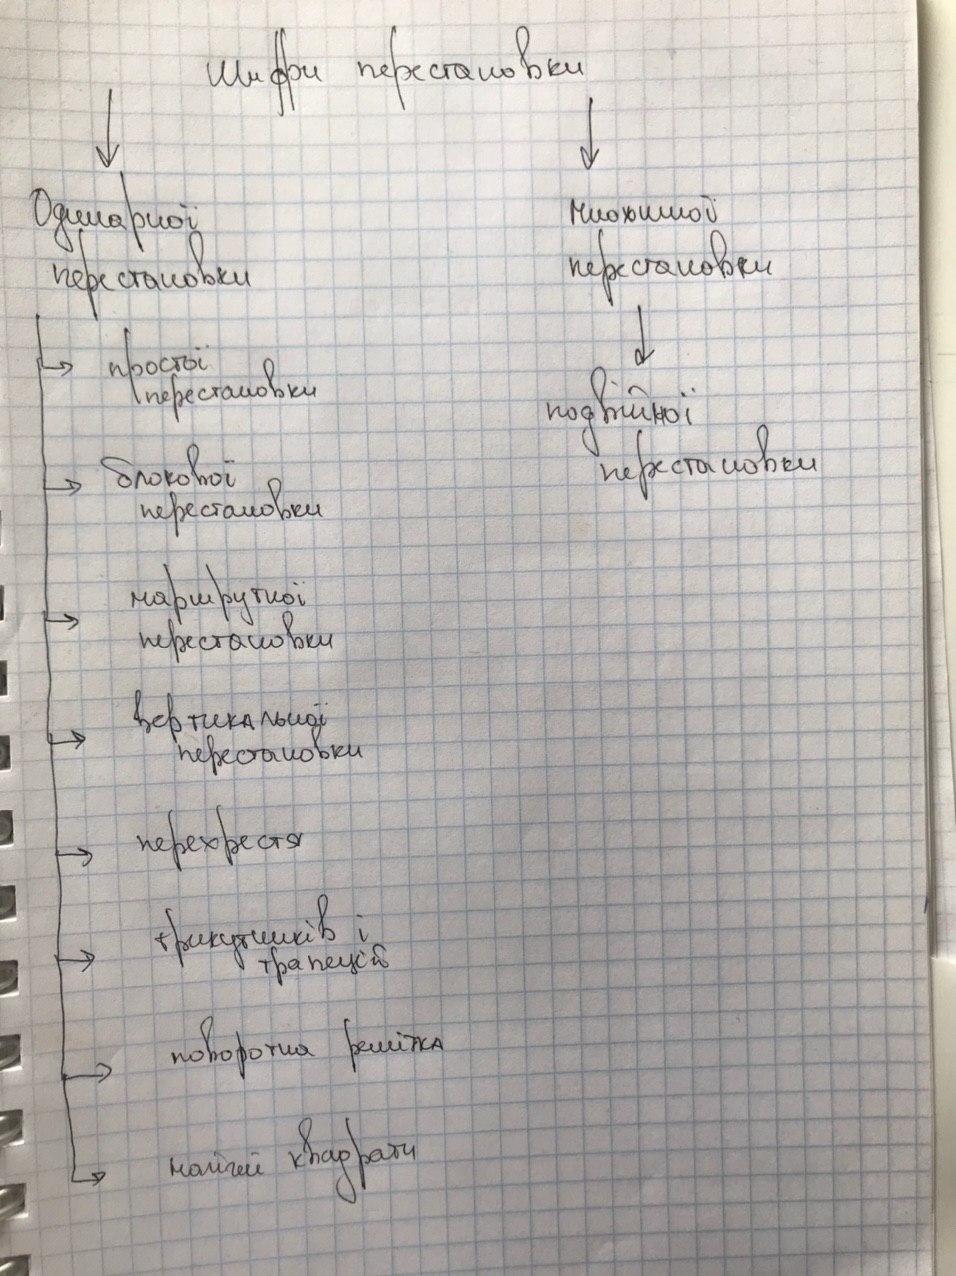 Шифри перестановки
Одинарної
перестановки
простої
перестановки
блокової
перестановки
маршрутної
перестановки
вертикальної
перестановки
перехрестя
трикутників і
трапецій
поворотна решітка
магічні квадрати
множинної
перестановки
подвійної
перестановки